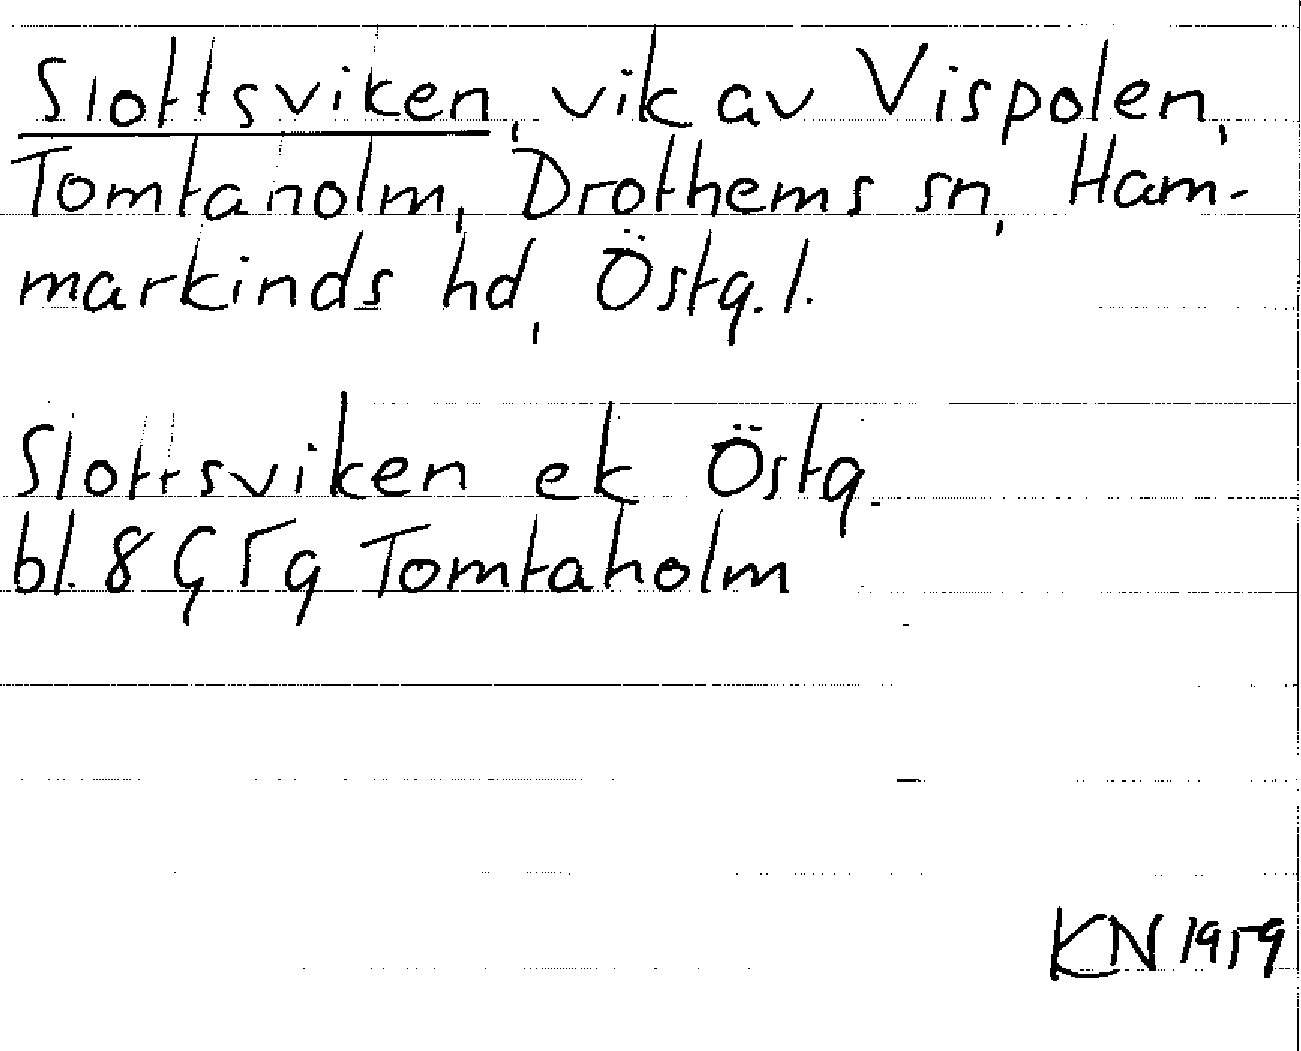 Slottsviken, vik av Vispolen,
Tomtaholm, Drothems sn, Ham-
markinds hd, Östg. l.
Slottsviken ek Östg.
bl. 8 G 5 g Tomtaholm
KN 1959